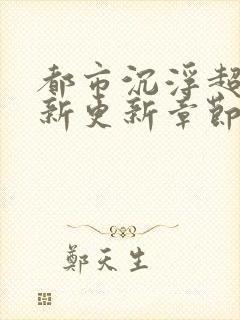 都市沉浮超
新更新章節
鄭天生